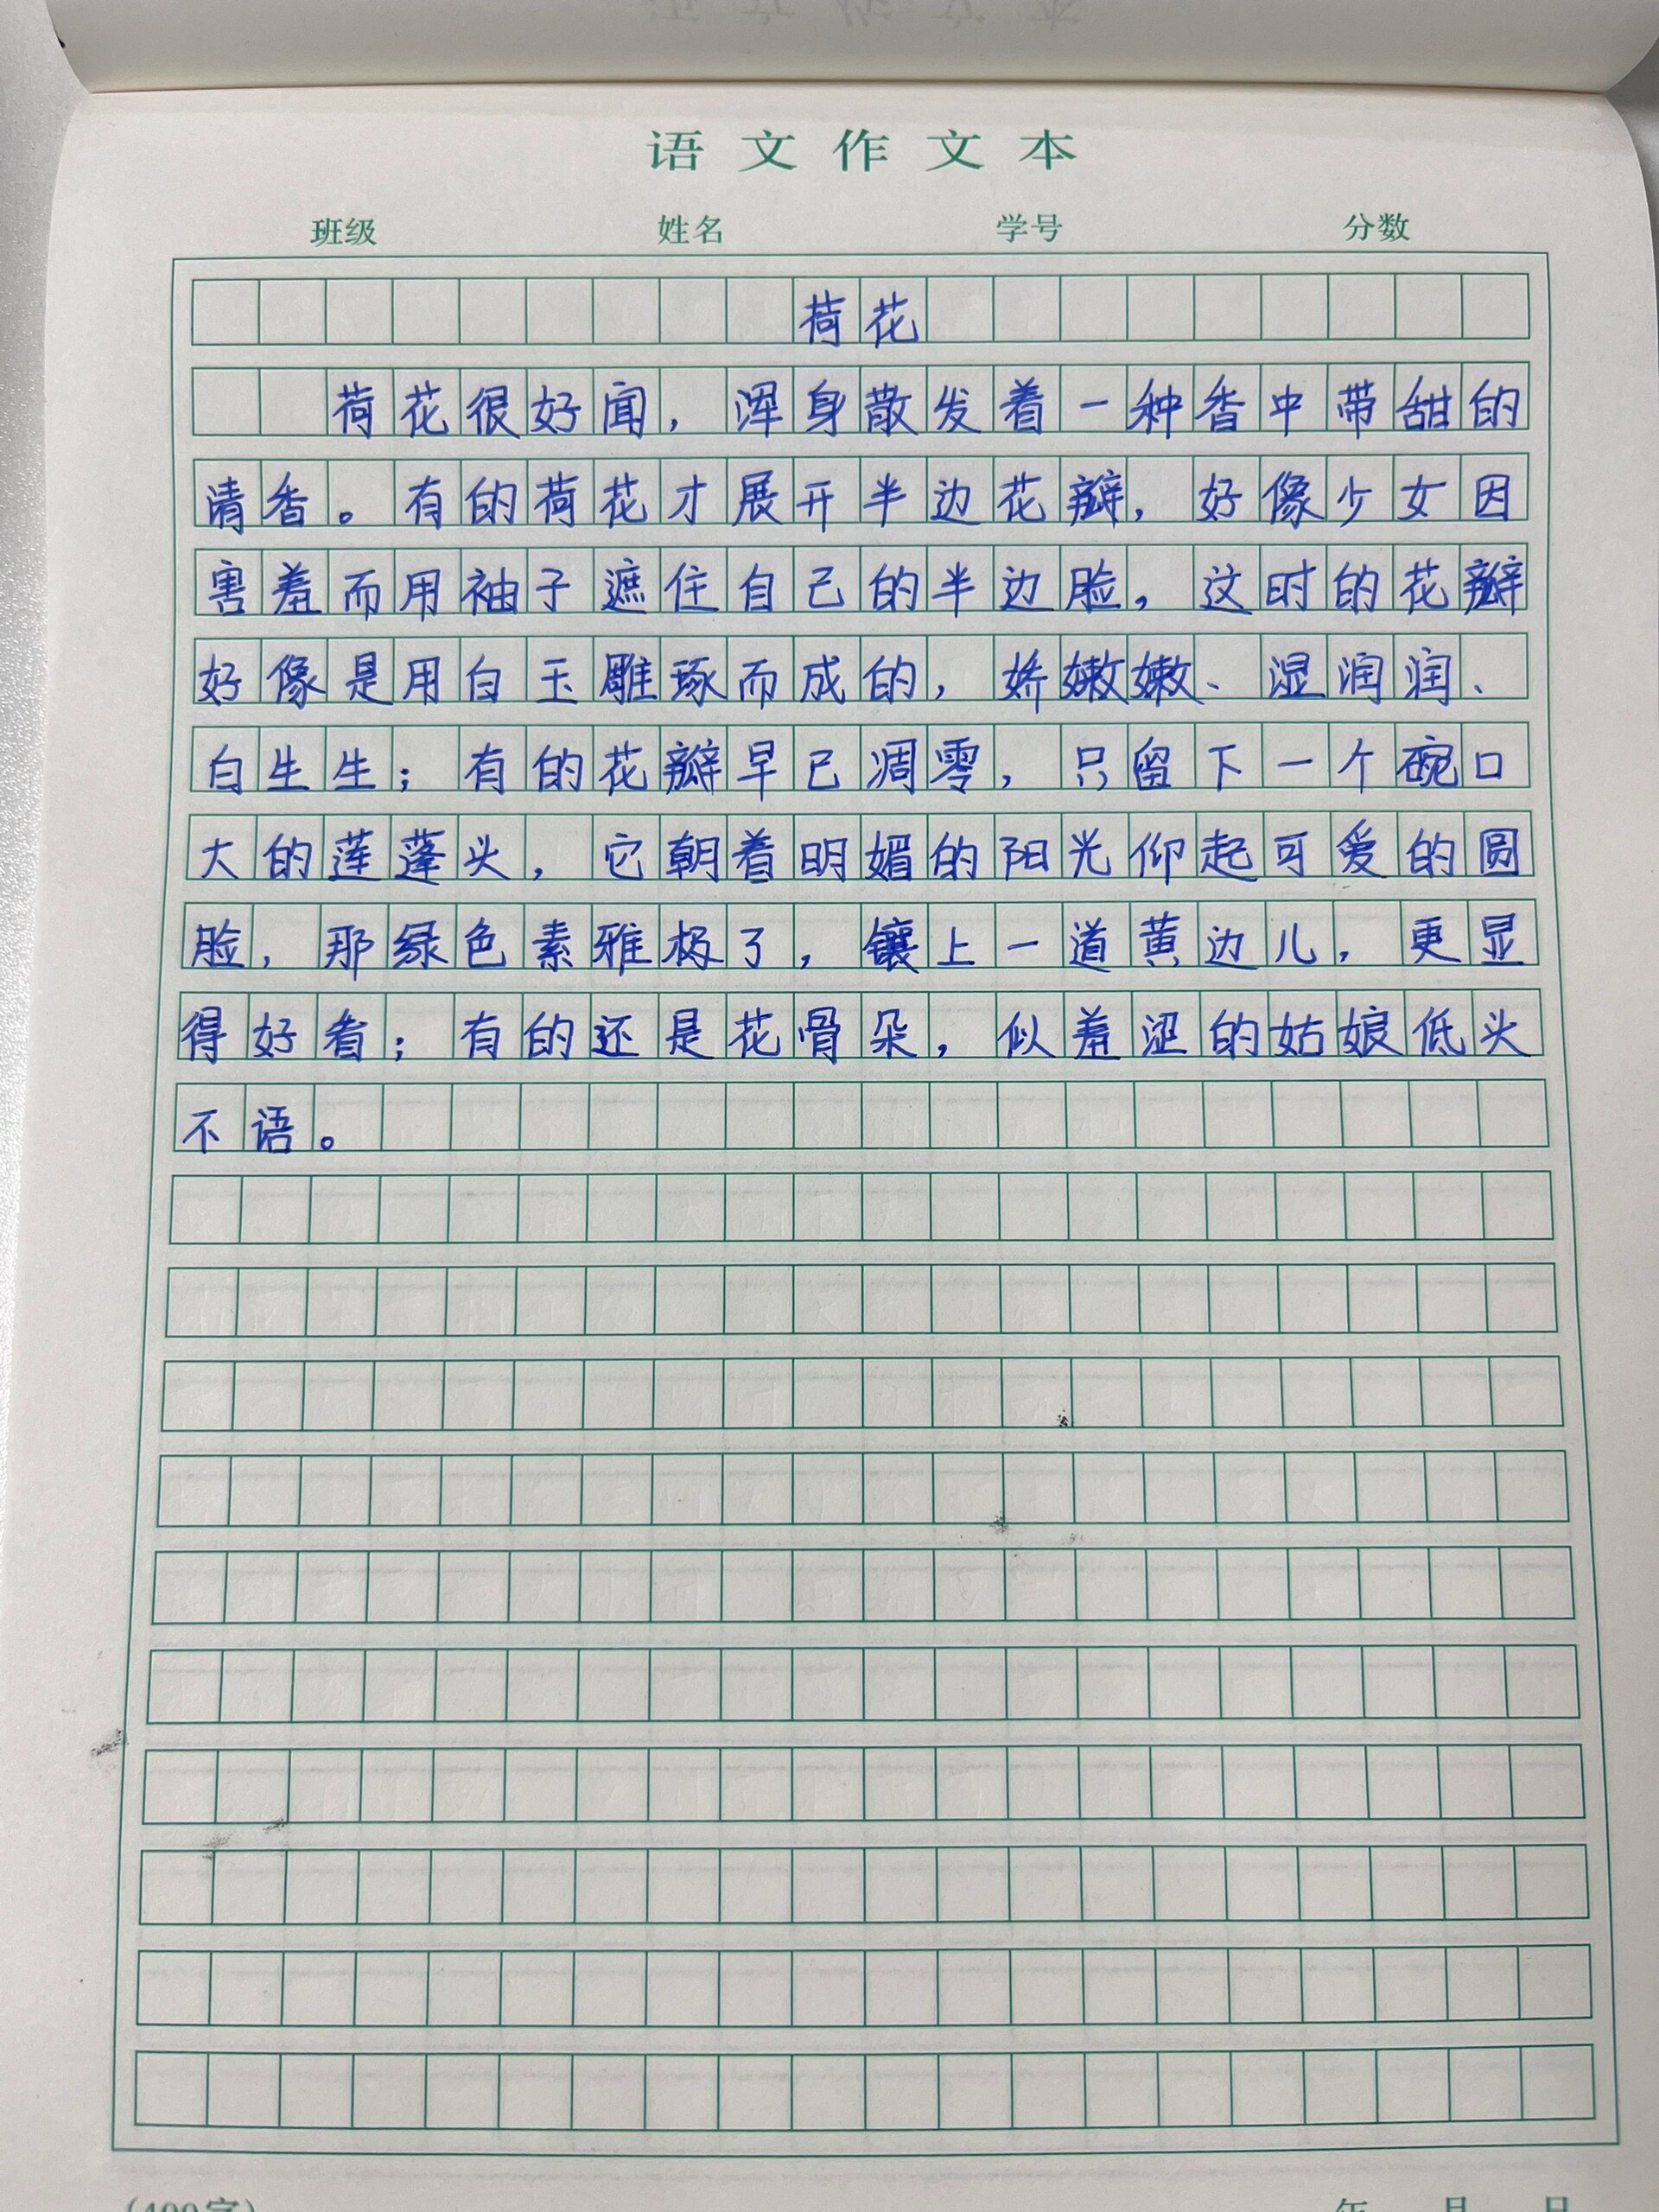 语文作文本
班级 姓名 学号 分数
荷花
荷花很好闻，浑身散发着一种香中带甜的
清香。有的荷花才展开半边花瓣，好像少女因
害羞而用袖子遮住自己的半边脸，这时的花瓣
好像是用白玉雕琢而成的，娇嫩嫩、湿润润、
白生生；有的花瓣早已凋零，只留下一个碗口
大的莲蓬头，它朝着明媚的阳光仰起可爱的圆
脸，那绿色素雅极了，镶上一道黄边儿，更显
得好看；有的还是花骨朵，似羞涩的姑娘低头
不语。
(400字) 年 月 日